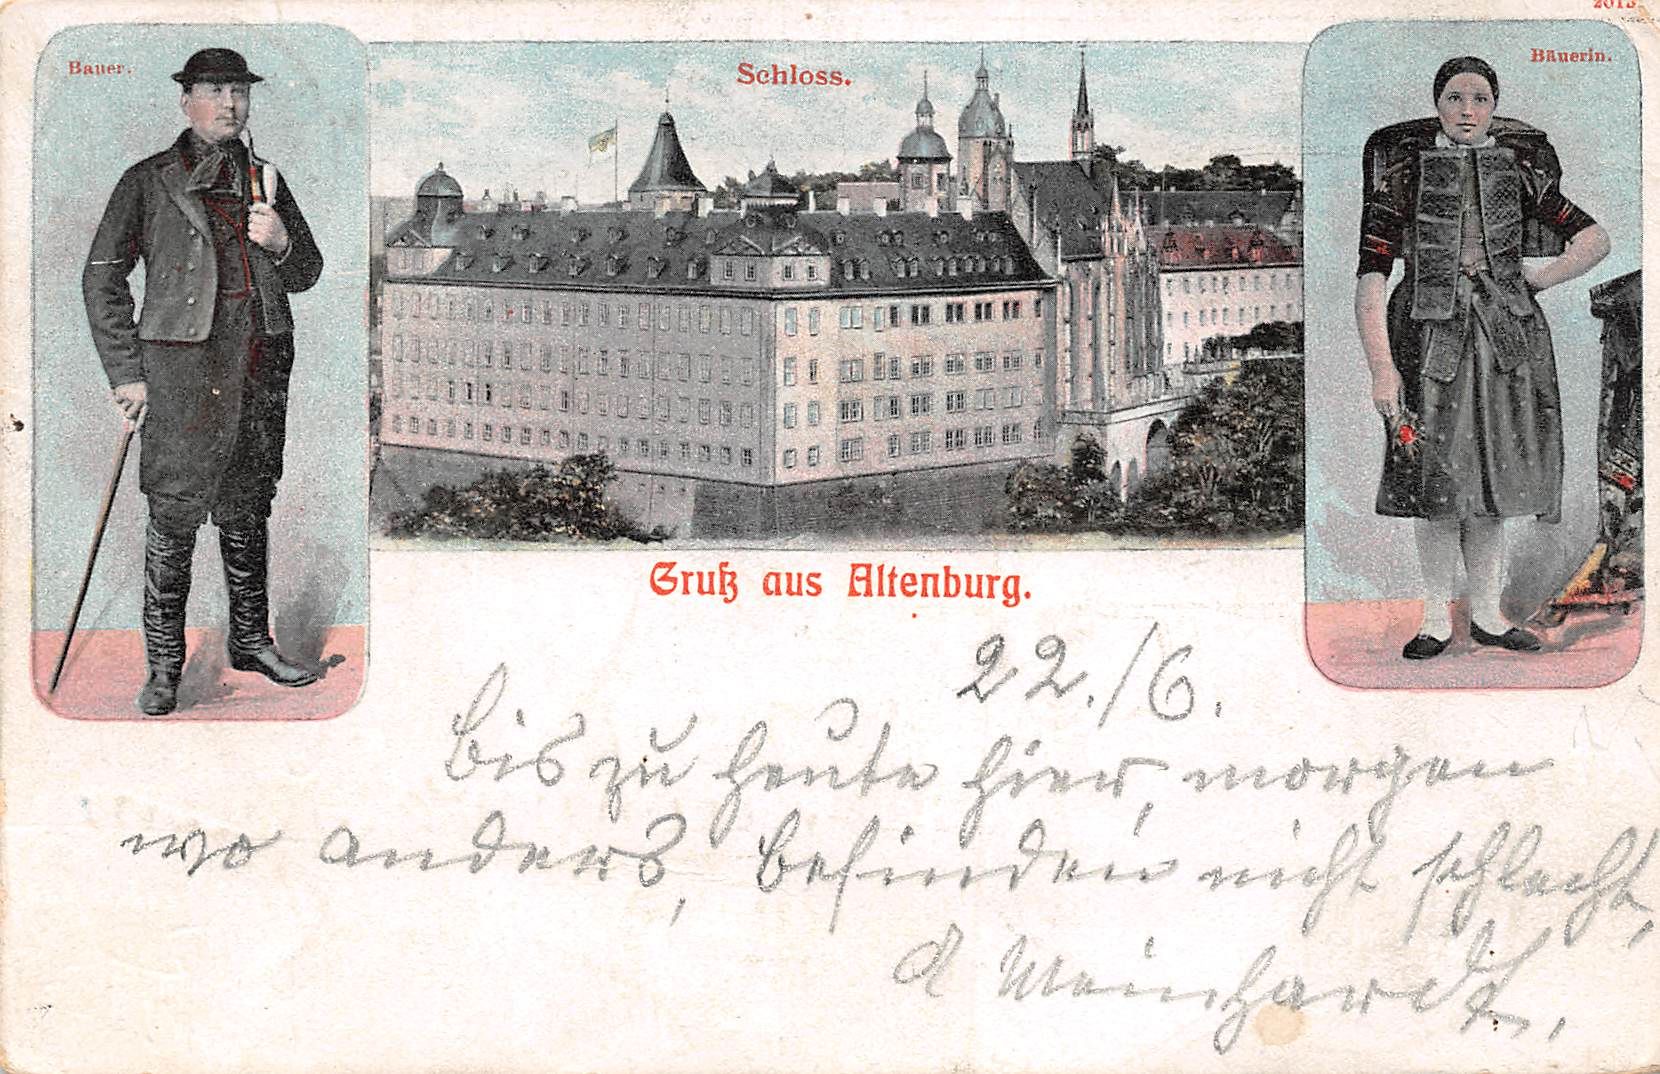 2013
Bauer.
Schloss.
Bäuerin.
Gruß aus Altenburg.
22./6.
Bis zu heute hier, morgen
wo anders, befinden nicht schlecht,
Meinhardt.